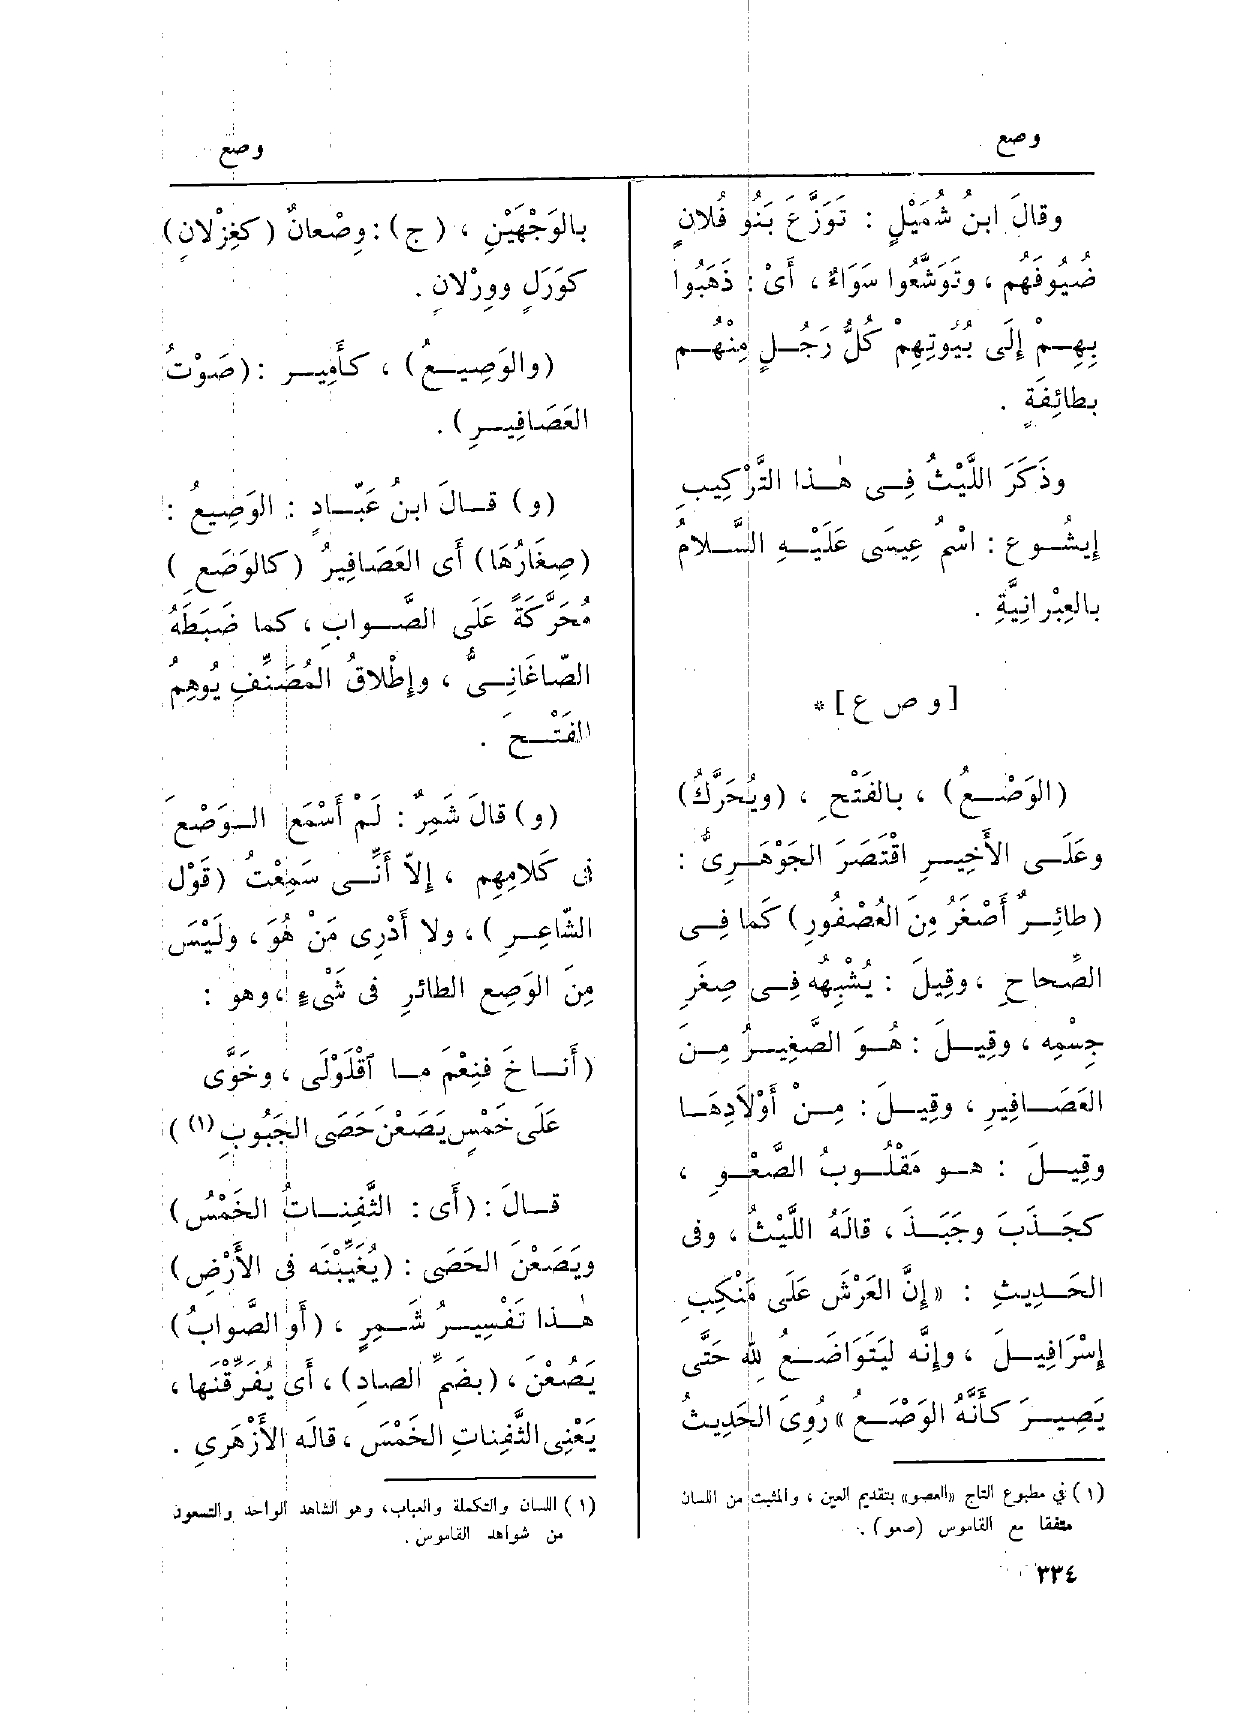 وصع
وصع
وقالَ ابنُ شُمَيْلٍ : تَوَزَّعَ بَنُو فُلانٍ
ضُيُوفَهُم ، وتَوَشَّعُوا سَوَاءٌ ، أَىْ : ذَهَبُوا
بِهِـمْ إِلَى بُيُوتِهِمْ كُلُّ رَجُـلٍ مِنْهُـم
بطائِفَةٍ .
وذَكَرَ اللَّيْثُ فِـى هٰـذا التَّرْكِيبِ
إِيشُـوع : اسْمُ عِيسَى عَلَيْـهِ السَّـلامُ
بالعِبْرانِيَّةِ .
[ و ص ع ] *
(الوَصْـعُ) ، بالفَتْحِ ، (ويُحَرَّكُ)
وعَلَـى الأَخِيـرِ اقْتَصَرَ الجَوْهَـرِىُّ :
(طائِـرٌ أَصْغَرُ مِنَ العُصْفُورِ) كَما فِـى
الصِّحاحِ ، وقِيلَ : يُشْبِهُه فِـى صِغَرِ
جِسْمِه ، وقِيـلَ : هُـوَ الصَّغِيـرُ مِـنَ
العَصَـافِيرِ ، وقِيـلَ : مِـنْ أَوْلَادِهَـا
وقِيـلَ : هـو مَقْلُـوبُ الصَّعْـوِ ،
كجَـذَبَ وجَبَـذَ ، قالَهُ اللَّيْثُ ، وفى
الحَـدِيثِ : « إِنَّ العَرْشَ عَلَى مَنْكِبِ
إِسْرَافِيـلَ ، وإِنَّه لَيَتَوَاضَـعُ لِلّٰه حَتَّى
يَصِيـرَ كأَنَّهُ الوَصْـعُ » رُوِىَ الحَدِيثُ
(١) في مطبوع التاج «العصو» بتقديم العين ، والمثبت من اللسان
متفقا مع القاموس (صعو) .
٣٣٤
بالوَجْهَيْنِ ، (ج) : وِصْعانٌ (كغِزْلانِ)
كوَرَلٍ ووِرْلانٍ .
(والوَصِيـعُ) ، كأَمِيـر : (صَوْتُ
العَصَافِيـرِ) .
(و) قـالَ ابنُ عَبّـادٍ : الوَصِيعُ :
(صِغَارُهَا) أَى العَصَافِيرُ (كالوَصَعِ)
مُحَرَّكَةً عَلَى الصَّـوابِ ، كما ضَبَطَهُ
الصّاغَانِـىُّ ، وإِطْلاقُ المُصَنِّفِ يُوهِمُ
الفَتْـحَ .
(و) قالَ شَمِرٌ : لَمْ أَسْمَع الـوَصْعَ
فى كَلامِهِم ، إِلاّ أَنِّـى سَمِعْتُ (قَوْلَ
الشّاعِـرِ) ، ولا أَدْرِى مَنْ هُوَ ، ولَيْسَ
مِنَ الوَصِع الطائرِ فى شَىْءٍ ، وهو :
(أَنـاخَ فنِعْمَ مـا ٱقْلَوْلَى ، وخَوَّى
عَلَى خَمْسٍ يَصَعْنَ حَصَى الجَبُوبِ (١))
قـالَ : (أَى : الثَّفِنـاتُ الخَمْسُ)
ويَصَعْنَ الحَصَى : (يُغَيِّبْنَه فى الأَرْضِ)
هٰـذا تَفْسِيـرُ شَمِـرٍ ، (أَو الصَّوابُ)
يَصُعْنَ ، (بضَمِّ الصادِ) ، أَى يُفَرِّقْنَها ،
يَعْنِى الثَّفِناتِ الخَمْسَ ، قالَه الأَزْهَرِى .
(١) اللسان والتكملة والعباب، وهو الشاهد الواحد والتسعون
من شواهد القاموس .